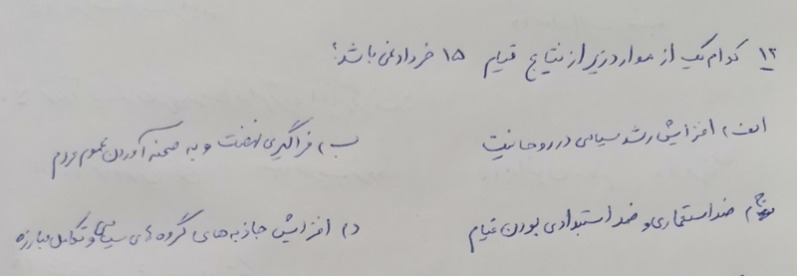 ۱۲ کدام یک از موارد زیر از نتایج قیام ۱۵ خرداد نمی باشد؟
الف) افزایش رشد سیاسی در روحانیت ب) فراگیری نهضت و به صحنه آوردن عموم مردم
ج) ضد استعماری و ضد استبدادی بودن قیام د) افزایش جاذبه های گروه های سیاسی و تکامل مبارزه